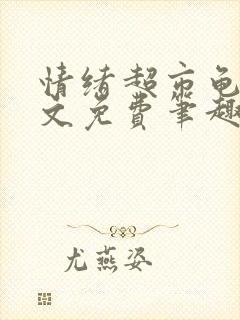 情绪超市龟
文免费笔趣
尤燕姿